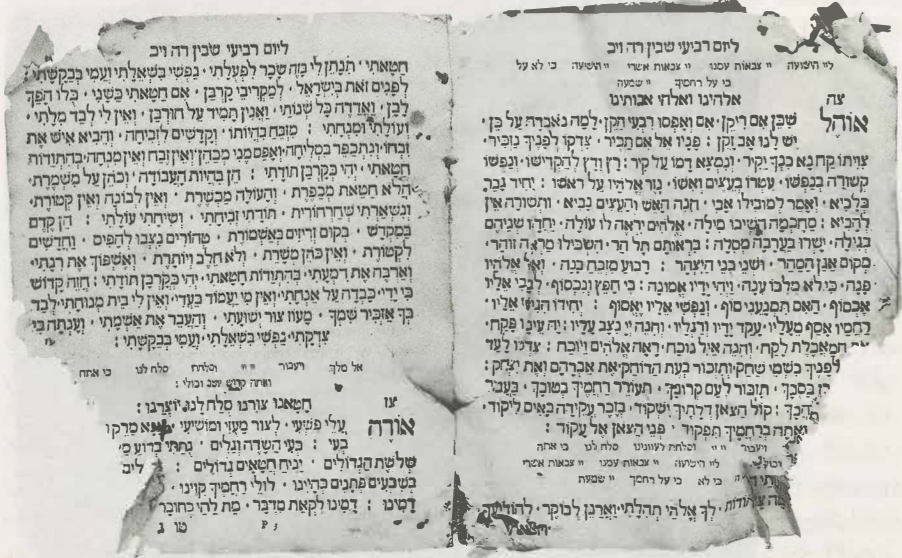 ליום רביעי שבין רה ויכ
ליי הישועה יי צבאות עמנו יי צבאות אשרי יי הושיעה כי לא על
כי על רחמיך יי שמעה
צה אלהינו ואלהי אבותינו
אוהל שכן אם ריקן · אם ואפסו רבעי הקן · למה נאבדה על כן ·
יש לנו אב זקן : פניו אל אם תכיר · צדקו לפניך נזכיר ·
צויתו קח נא בנך יקיר · ונמצא דמו על קיר : רץ ודץ להקדישו · ונפשו
קשורה בנפשו · עטרו בעצים ואשו · נזר אלהיו על ראשו : יחיד גבר
כלביא · ויאמר למובילו אבי · הנה האש והעצים נביא · ותשורה אין
להביא : מחכמה השיבו מילה · אלהים יראה לו עולה · יחדו שניהם
בגילה · ישרו בערבה מסלה : בראותם תל הר · השכילו מראה זוהר ·
מקום אבן המהר · ושני בני היצהר : רבוע מזבח בנה · ואל אלהיו
פנה · כי לא מלבו ענה · ויהי ידיו אמונה : כי חפץ ונכסוף · לבבי אליו
אכסוף · האם תמנעני סוף · ונפשי אליו יאסוף : יחידו הגיש אליו ·
רחמיו אסף מעליו · עקד ידיו ורגליו · והנה יי נצב עליו : יה עינו פקח ·
המאכלת לקח · והנה איל נוכח · ראה אלהים ויוכח : צדנו לעד
לפניך בשמי שחק · ותזכור בעת הדוחק · את אברהם ואת יצחק :
בסבך · תזכור לעם קרובך · תעורר רחמיך בטובך · בעבור
: קול הצאן דלתיך ישקוד · בזכר עקידה באים ליקוד ·
ואתה ברחמיך תפקוד · פני הצאן אל עקוד :
ויעבור יי יי וסלחת לעווננו סלח לנו כי אתה
ליי הישועה יי צבאות עמנו יי צבאות אשרי
כי לא כי על רחמיך יי שמעת
לך אלהי תהלתי · ואדנן לבוקר ·
ליום רביעי שבין רה ויכ
חטאתי · תנתן לי בזה שכר לפעלתי · נפשי בשאלתי ועמי בבקשתי :
לפנים זאת בישראל · למקריבי קרבן · אם חטאתי כשני · כלו הפך
לבן · ואדדה כל שנותי · ואנין תמיד על חורבן · ואין לי לבד מלתי ·
ועולתי ומנחתי : מזבח בהיותו · וקדשים לזביחה · והביא איש את
זבחו · ונתכפר בסליחה · ואפס מני מכהן · ואין זבח ואין מנחה · בהתודות
חטאתי · יהי כקרבן תודתי : הן בהיות העבודה · וכהן על משמרת ·
הלא חטאת מכפרת · והעולה מכשרת · ואין לבונה ואין קטורת ·
ונשארתי שחרחורית · תודתי זביחתי · ושיחתי עולתי : הן קדם
במקדש · בקום זריזים באשמורת · טהורים נצבו להפיס · וחדשים
לקטורת · ואין כהן משרת · ולא חלב ויותרת · ואשפוך את רנתי ·
וארבה את דמעתי · בהתודות חטאתי · יהי כקרבן תודתי : חזה קדוש
כי ידי · כבדה על אנחתי · ואין מי יעמוד בעדי · ואין לי בית מנוחתי · לבד
בך אזכיר שמך · מעוז צור ישועתי · והעבר את אשמתי · וענתה בי
צדקתי · נפשי בשאלתי · ועמי בבקשתי :
אל מלך ויעבור יי יי וסלחת סלח לנו כי אתה
ואתה קדוש יושב וכולי :
צו חטאנו צורנו סלח לנו יוצרנו :
אודה עלי פשעי · לצור מעזי ומושיעי מרקו
בעי : בעי השדה וגלים · נתתי
שלשת הגדולים · יניח חטאים גדולים : ליב
בשבעים פתנים כהיינו · לולי רחמיך קוינו ·
דמינו : דמינו לקאת מדבר · מת לחי
טו ג P 3